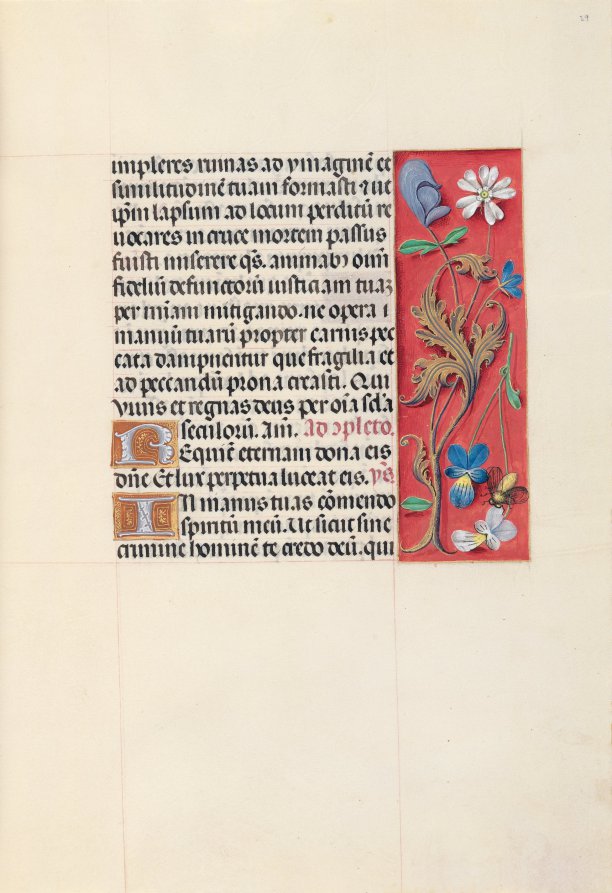 29
impleres ruinas ad ymaginē et
similitudinē tuam formasti ⁊ ut
ip̄m lapsum ad locum perditū re
uocares in cruce mortem passus
fuisti miserere q̄s. animabꝫ om̄
fidelium defunctorū iusticiam tuaꝫ
per miam mitigando. ne opera
manuū tuarū propter carnis pec
cata dampnentur que fragilia et
ad peccandū prona creasti. Qui
viuis et regnas deus per oīa scl'a
seculorū. Am̄. Ad ꝯpleto.
Requiē eternam dona eis
dn̄e Et lux perpetua luceat eis. ps̄
In manus tuas cōmendo
spiritū meū. Ut sicut sine
crimine hominē te credo deū. qui